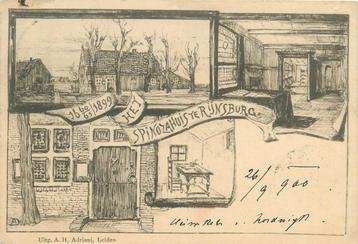 1660
63/1899
HET
SPINOZAHUIS TE RIJNSBURG.
26/9 900
Uitg. A. H. Adriani, Leiden